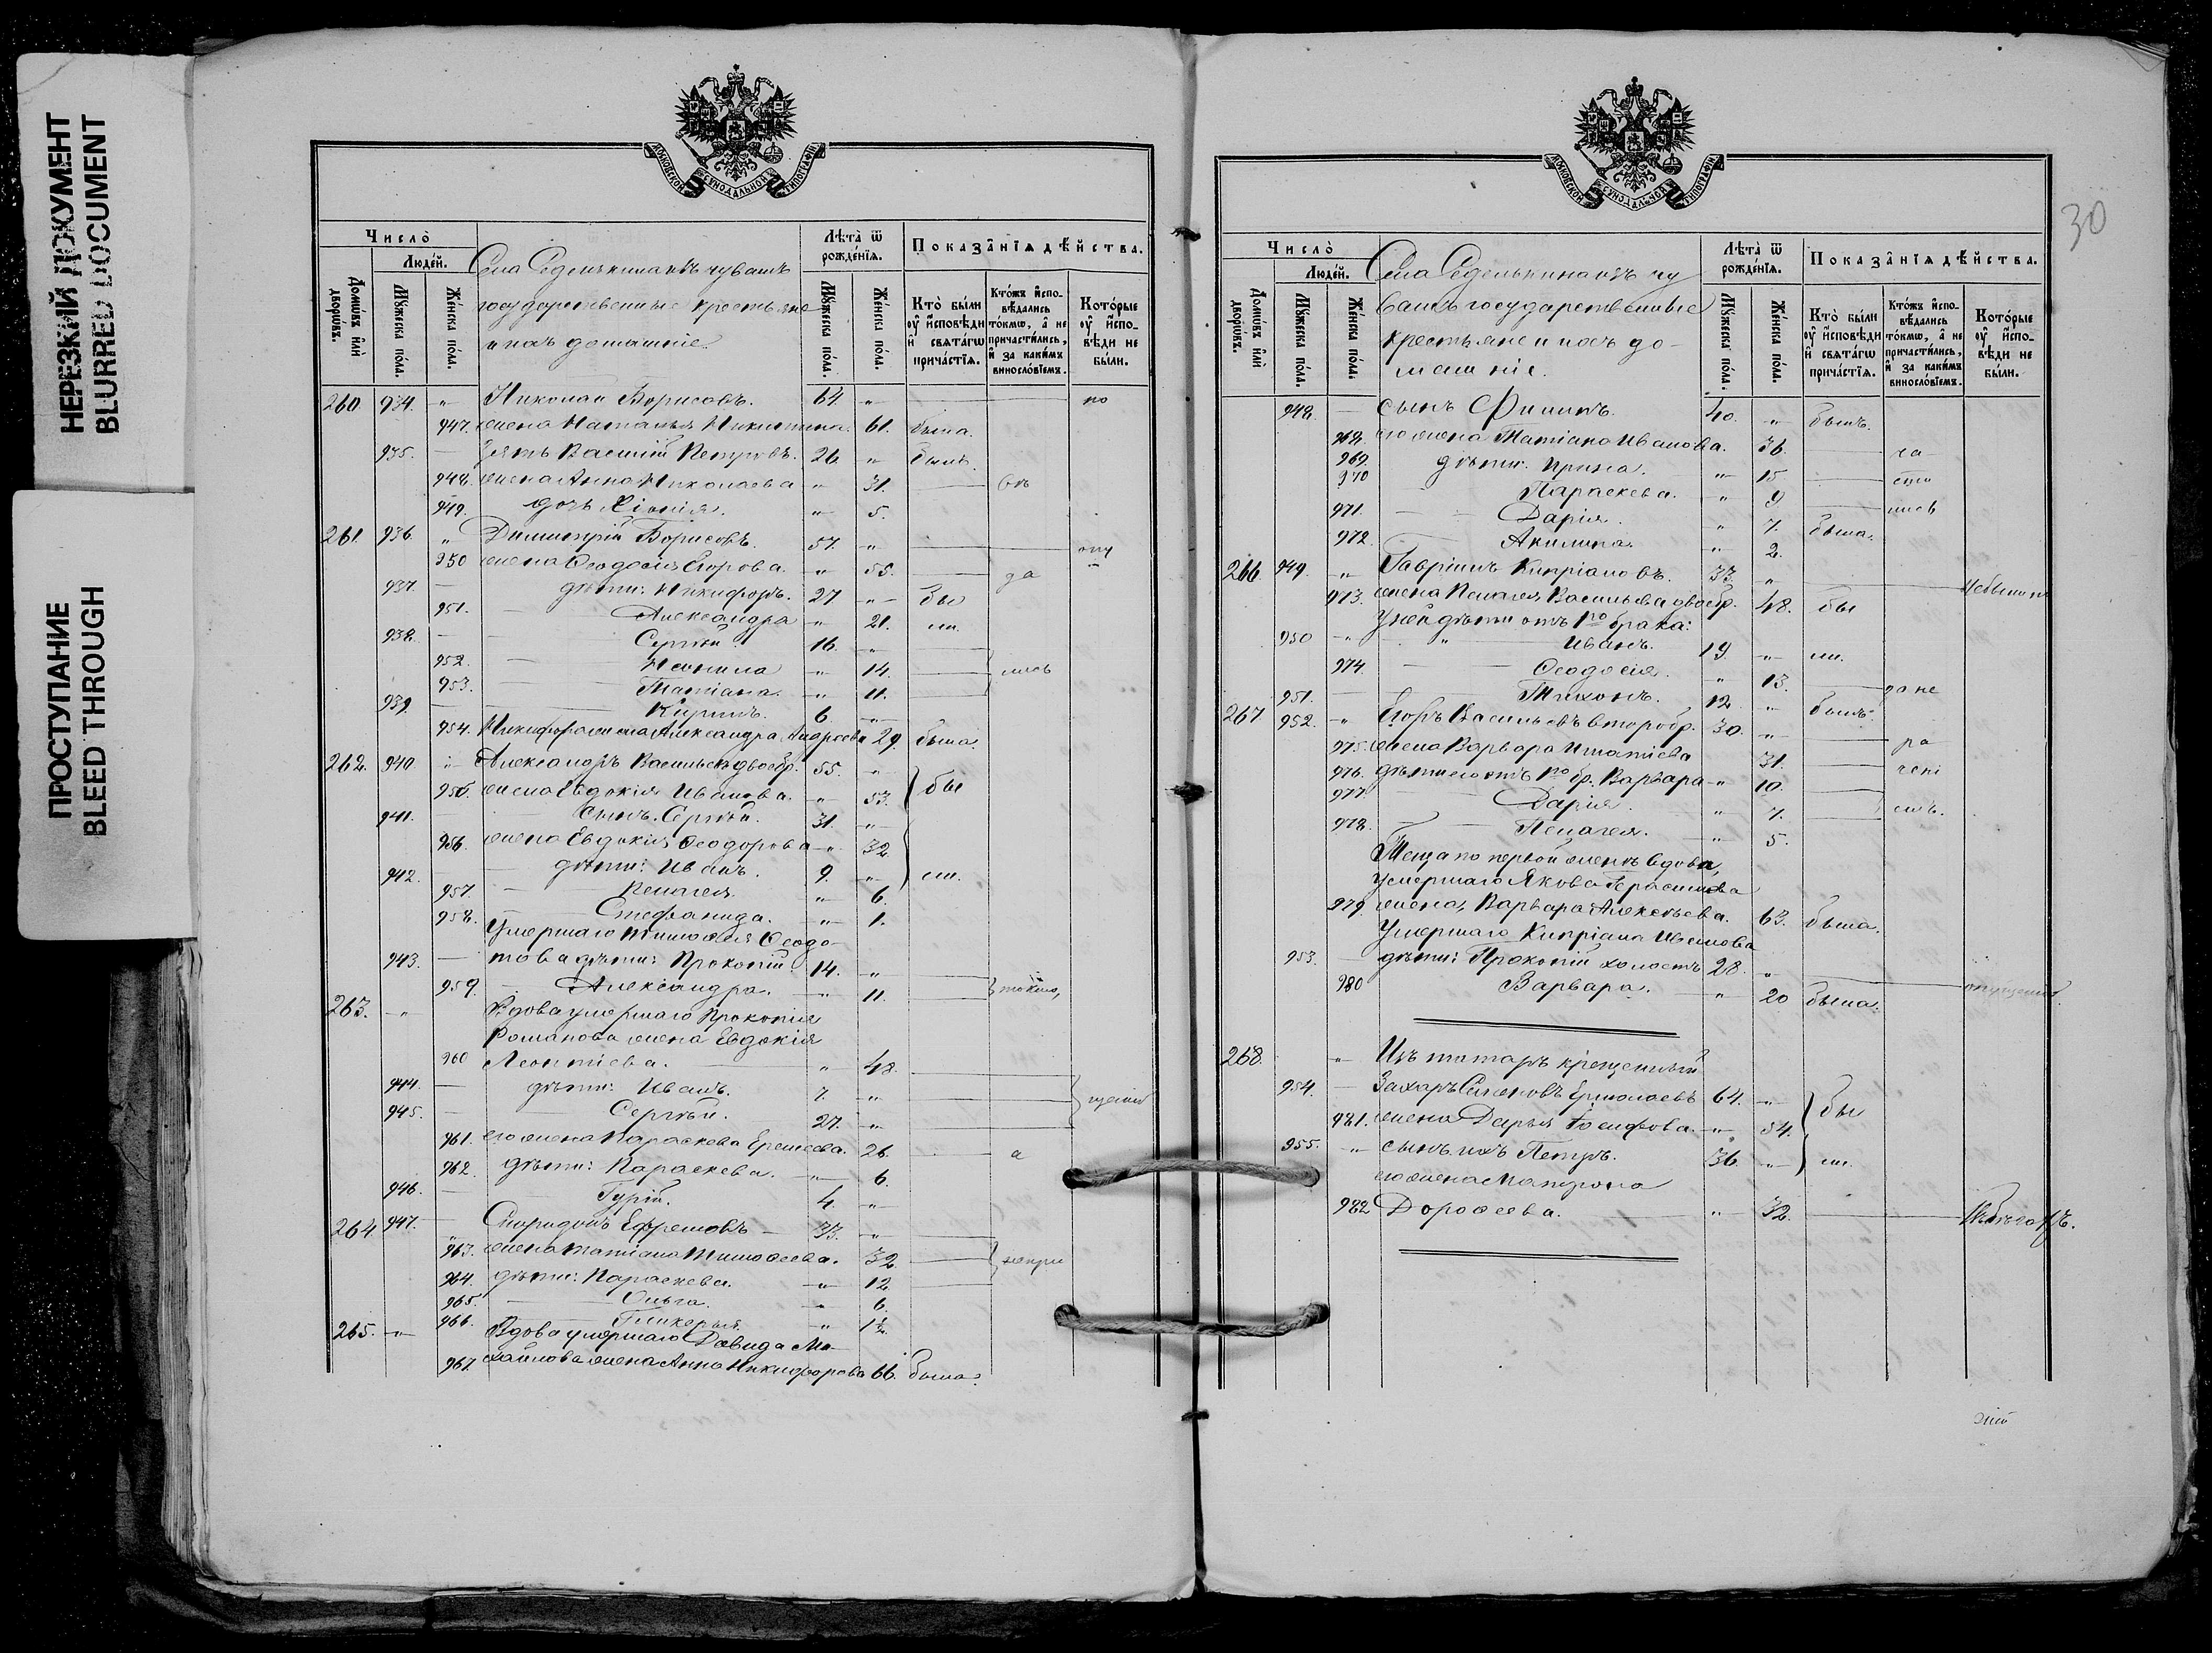 НЕРЕЗКИЙ ДОКУМЕНТ
BLURRED DOCUMENT
ПРОСТУПАНИЕ
BLEED THROUGH
МОСКОВСКОЙ СѴНОДАЛЬНОЙ ТИПОГРАФІИ
Число̀
Люде́й.
Домѡ́въ и҆лѝ дворѡ́въ.
Мꙋ́жеска по́ла.
Же́нска по́ла.
Села Седелькина изъ чувашъ
государственные крестьяне
и ихъ домашніе.
Лѣта̀ ѿ рожде́нїѧ.
Мꙋ́жеска по́ла.
Же́нска по́ла.
Показа̑нїѧ дѣ́йства.
Кто̀ бы́ли оу҆ и҆́сповѣди и҆ свѧта́гѡ прича́стїѧ.
Кто́жъ и҆спо-вѣ́дались то́кмѡ, а҆ не причасти́лись, и҆ за каки́мъ виносло́вїемъ.
Кото́рые оу҆ и҆́спо-вѣди не бы́ли.
260. 934. „ Николай Борисовъ. 64. „ по
947. жена Наталья Никитина. 61. была.
935. — Зять Василій Петровъ. 26. „ былъ.
948. жена Анна Николаева „ 31. — въ
949. дочь Хіонія. „ 5.
261. 936 „ Димитрій Борисовъ. 57. „ — опу
950 жена Ѳеодосія Егорова. „ 55. — да
937. — дѣти: Никифоръ. 27 „ бы
951. — Александра „ 21. ли.
938. — Сергѣй 16. „ —
952. — Неонила „ 14. — лись
953. — Татіана. „ 11. —
939. — Кириллъ. 6. „
954. Никифора жена Александра Андреева 29. была.
262. 940. „ Александръ Васильевъ двоебр. 55. „
955. жена Евдокія Иванова. „ 53. бы
941. — сынъ Сергѣй. 31. „
956. жена Евдокія Ѳеодорова „ 32
942. — дѣти: Иванъ. 9. „ ли.
957. — Пелагея. „ 6.
958. — Стефанида. „ 1.
Умершаго Тимоѳея Ѳеодо-
943. — това дѣти: Прокопій. 14. „ —
959. — Александра. „ 11. — токмо,
263. „ Вдова умершаго Прокопія
Романова жена Евдокія
960 Леонтіева. — „ 48. —
944. — дѣти: Иванъ. 7. „
945. — Сергѣй. 27. „
961. его жена Параскева Еремеева. 26. — а
962. дѣти: Параскева. „ 6.
946. — Гурій. 4. „
264. 947. — Спиридонъ Ефремовъ — 33. „
963. жена Татіана Тимоѳеева. 32. — непри
964. дѣти: Параскева. „ 12.
965. — Ольга. „ 6.
966. — Гликерья. „ 1½
265. „ Вдова умершаго Давида Ми-
967. хайлова жена Анна Никифорова 66. была.
30
МОСКОВСКОЙ СѴНОДАЛЬНОЙ ТИПОГРАФІИ
Число̀
Люде́й.
Домѡ́въ и҆лѝ дворѡ́въ.
Мꙋ́жеска по́ла.
Же́нска по́ла.
Села Седелькина изъ чу
вашъ государственные
крестьяне и ихъ до-
машніе.
Лѣта̀ ѿ рожде́нїѧ.
Мꙋ́жеска по́ла.
Же́нска по́ла.
Показа̑нїѧ дѣ́йства.
Кто̀ бы́ли оу҆ и҆́сповѣди и҆ свѧта́гѡ прича́стїѧ.
Кто́жъ и҆спо-вѣ́дались то́кмѡ, а҆ не причасти́лись, и҆ за каки́мъ виносло́вїемъ.
Кото́рые оу҆ и҆́спо-вѣди не бы́ли.
948. — сынъ Филипъ. 40. „ былъ.
968. его жена Татіана Иванова. 36. — ча
969. дѣти: Ирина. „ 15 — сти
970 Параскева. „ 9 — лись
971. — Дарія. „ 7. была.
972. — Акилина. „ 2.
266. 949. „ Гавріилъ Кипріановъ. 33. „ — небыли
973. жена Пелагея Васильева двоебр. 48. бы
У ней дѣти отъ 1го брака:
950 „ Иванъ. 19. „ ли.
974. — Ѳеодосія. „ 13. — за не
951. — Тихонъ. 12. „ былъ.
267. 952. „ Егоръ Васильевъ второбр. 30. „
975. жена Варвара Игнатіева 31. — ра
976. дѣти его отъ 1го бр. Варвара „ 10. — чені
977. — Дарія. „ 7. — емъ.
978. — Пелагея. „ 5.
Теща по первой женѣ вдова,
умершаго Якова Герасимова
979. жена, Варвара Алексѣева. 63. была.
Умершаго Кипріана Иванова
953. — дѣти: Прокопій холостъ 28. „ — опущенію.
980 Варвара. „ 20 была.
268. „ Изъ татаръ крещеный
954. — Захаръ Семеновъ Ермолаевъ 64. „ бы
981. жена Дарья Іосифова. „ 54.
955. „ сынъ ихъ Петръ. 36. „ ли.
его жена Матрона
982 Дороѳеева. — „ 32. — Въ бѣгахъ.